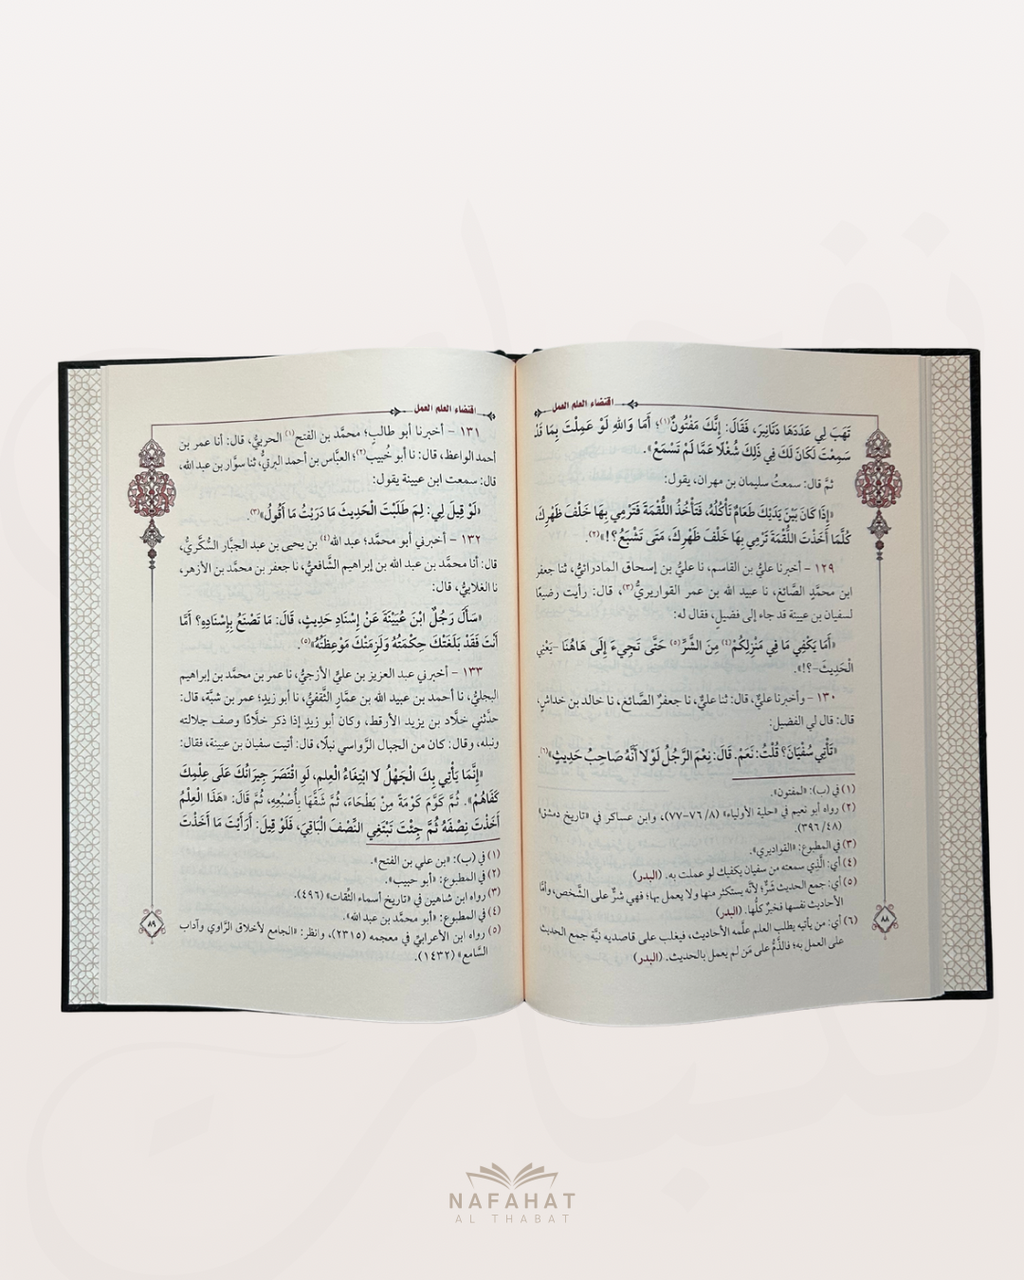 اقتضاء العلم العمل
تَهَبَ لِي عَدَدَهَا دَنَانِيرَ، فَقَالَ: إِنَّكَ مَفْتُونٌ(١)؛ أَمَا وَاللهِ لَوْ عَمِلْتَ بِمَا قَدْ
سَمِعْتَ لَكَانَ لَكَ فِي ذَلِكَ شُغْلًا عَمَّا لَمْ تَسْمَعْ».
ثمَّ قال: سمعتُ سليمان بن مهران، يقول:
«إِذَا كَانَ بَيْنَ يَدَيْكَ طَعَامٌ تَأْكُلُهُ، فَتَأْخُذُ اللُّقْمَةَ فَتَرْمِي بِهَا خَلْفَ ظَهْرِكَ،
كُلَّمَا أَخَذْتَ اللُّقْمَةَ تَرْمِي بِهَا خَلْفَ ظَهْرِكَ، مَتَى تَشْبَعُ؟!»(٢).
١٢٩ - أخبرنا عليُّ بن القاسم، نا عليُّ بن إسحاق المادرائيُّ، ثنا جعفر
ابن محمَّدٍ الصَّائغ، نا عبيد الله بن عمر القواريريُّ(٣)، قال: رأيت رضيعًا
لسفيان بن عيينة قد جاء إلى فضيلٍ، فقال له:
«أَمَا يَكْفِي مَا فِي مَنْزِلِكُمْ(٤) مِنَ الشَّرِّ(٥) حَتَّى تَجِيءَ إِلَى هَاهُنَا -يَعْنِي
الْحَدِيثَ-؟!».
١٣٠ - وأخبرنا عليٌّ، قال: ثنا عليٌّ، نا جعفرٌ الصَّائغ، نا خالد بن خداشٍ،
قال: قال لي الفضيل:
«تَأْتِي سُفْيَانَ؟ قُلْتُ: نَعَمْ. قَالَ: نِعْمَ الرَّجُلُ لَوْلَا أَنَّهُ صَاحِبُ حَدِيثٍ»(٦).
(١) في (ب): «لمفتون».
(٢) رواه أبو نعيم في «حلية الأولياء» (٨/ ٧٦-٧٧)، وابن عساكر في «تاريخ دمشق»
(٤٨/ ٣٩٦).
(٣) في المطبوع: «القواديري».
(٤) أي: الَّذي سمعته من سفيان يكفيك لو عملت به. (البدر)
(٥) أي: جمع الحديث شرٌّ؛ لأنَّه يستكثر منها ولا يعمل بها؛ فهي شرٌّ على الشَّخص، وأمَّا
الأحاديث نفسها فخيرٌ كلُّها. (البدر)
(٦) أي: من يأتيه يطلب العلم علَّمه الأحاديث، فيغلب على قاصديه نيَّة جمع الحديث
على العمل به؛ فالذَّمُّ على مَن لم يعمل بالحديث. (البدر)
٨٨
اقتضاء العلم العمل
١٣١ - أخبرنا أبو طالبٍ؛ محمَّد بن الفتح(١) الحربيُّ، قال: أنا عمر بن
أحمد الواعظ، قال: نا أبو خُبيب(٢)؛ العبَّاس بن أحمد البرتيُّ، ثنا سوَّار بن عبد الله،
قال: سمعت ابن عيينة يقول:
«لَوْ قِيلَ لِي: لِمَ طَلَبْتَ الْحَدِيثَ مَا دَرَيْتُ مَا أَقُولُ»(٣).
١٣٢ - أخبرني أبو محمَّد؛ عبد الله(٤) بن يحيى بن عبد الجبَّار السُّكَّريُّ،
قال: أنا محمَّد بن عبد الله بن إبراهيم الشَّافعيُّ، نا جعفر بن محمَّد بن الأزهر،
نا الغلابيُّ، قال:
«سَأَلَ رَجُلٌ ابْنَ عُيَيْنَةَ عَنْ إِسْنَادِ حَدِيثٍ، قَالَ: مَا تَصْنَعُ بِإِسْنَادِهِ؟ أَمَّا
أَنْتَ فَقَدْ بَلَغَتْكَ حِكْمَتُهُ وَلَزِمَتْكَ مَوْعِظَتُهُ»(٥).
١٣٣ - أخبرني عبد العزيز بن عليٍّ الأزجيُّ، نا عمر بن محمَّد بن إبراهيم
البجليُّ، نا أحمد بن عبيد الله بن عمَّارٍ الثَّقفيُّ، نا أبو زيدٍ؛ عمر بن شبَّة، قال:
حدَّثني خلَّاد بن يزيد الأرقط، وكان أبو زيدٍ إذا ذكر خلَّادًا وصف جلالته
ونبله، وقال: كان من الجبال الرَّواسي نبلًا، قال: أتيت سفيان بن عيينة، فقال:
«إِنَّمَا يَأْتِي بِكَ الْجَهْلُ لَا ابْتِغَاءُ الْعِلْمِ، لَوِ اقْتَصَرَ جِيرَانُكَ عَلَى عِلْمِكَ
كَفَاهُمْ». ثُمَّ كَوَّمَ كَوْمَةً مِنْ بَطْحَاءَ، ثُمَّ شَقَّهَا بِأُصْبُعِهِ، ثُمَّ قَالَ: «هَذَا الْعِلْمُ
أَخَذْتَ نِصْفَهُ ثُمَّ جِئْتَ تَبْتَغِي النِّصْفَ الْبَاقِيَ، فَلَوْ قِيلَ: أَرَأَيْتَ مَا أَخَذْتَ
(١) في (ب): «بن علي بن الفتح».
(٢) في المطبوع: «أبو حبيب».
(٣) رواه ابن شاهين في «تاريخ أسماء الثِّقات» (٤٩٦).
(٤) في المطبوع: «أبو محمَّد بن عبد الله».
(٥) رواه ابن الأعرابيِّ في معجمه (٢٣١٥)، وانظر: «الجامع لأخلاق الرَّاوي وآداب
السَّامع» (١٤٣٢).
٨٩
NAFAHAT
AL THABAT